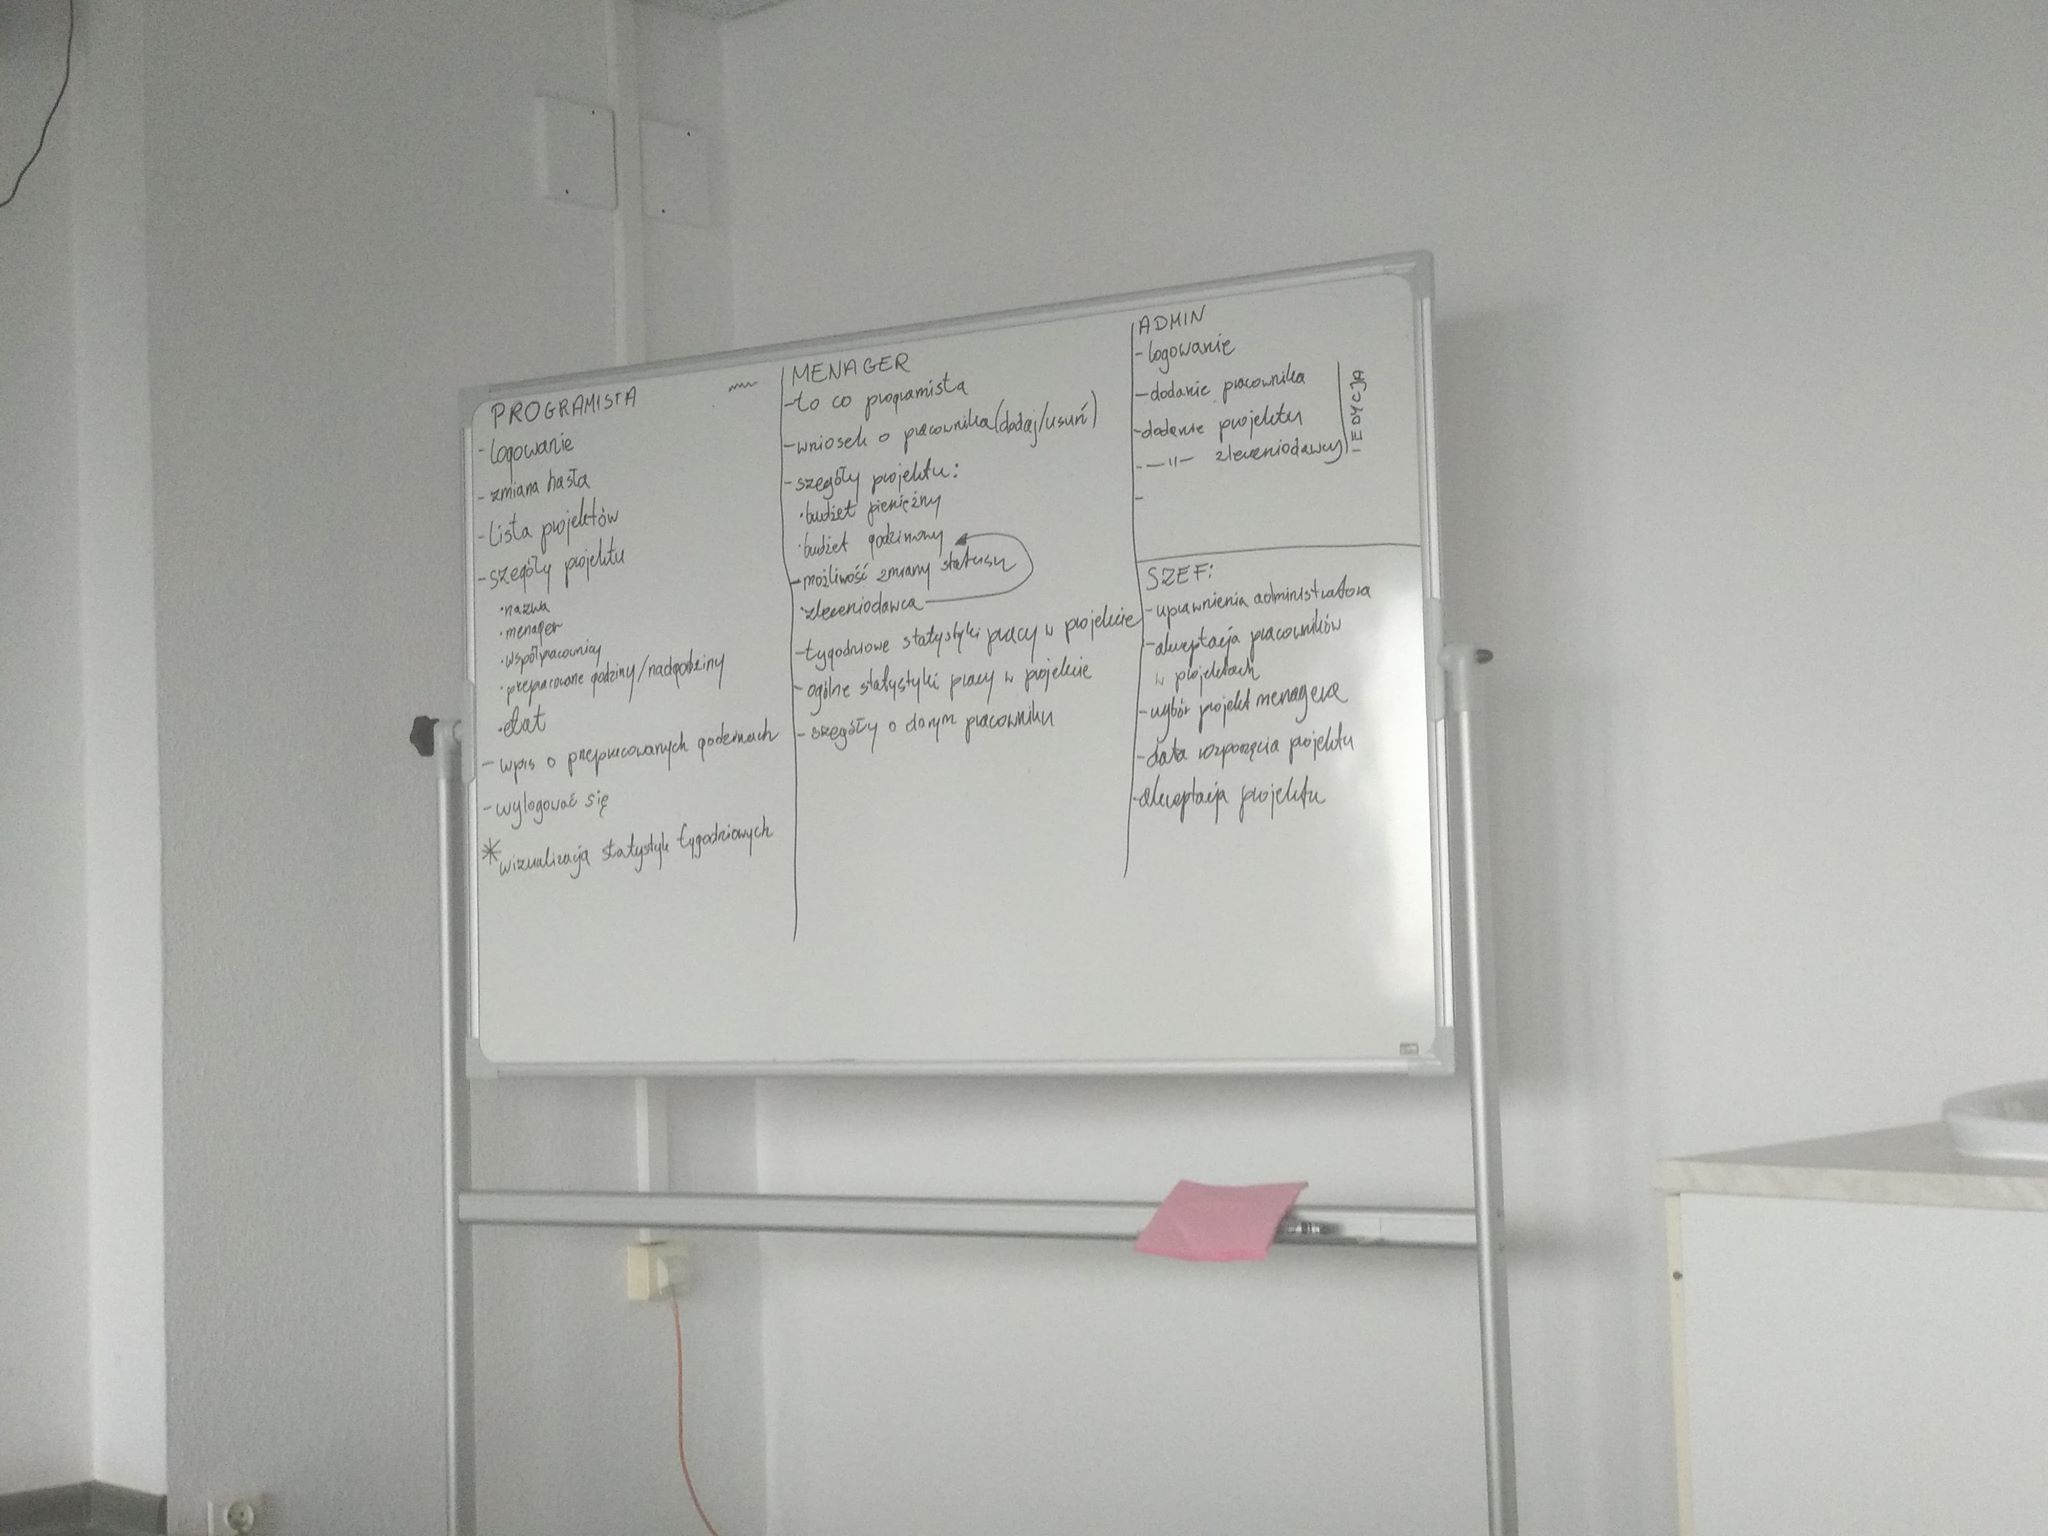 PROGRAMISTA
- logowanie
- zmiana hasła
- Lista projektów
- szegóły projektu
• nazwa
• menager
• współpracownicy
• przepracowane godziny/nadgodziny
• etat
- wpis o przepracowanych godzinach
- wylogować się
* wizualizacja statystyk tygodniowych
MENAGER
- to co programista
- wniosek o pracownika (dodaj/usuń)
- szegóły projektu:
• budżet pieniężny
• budżet godzinowy
- możliwość zmiany statusu
• zleceniodawca
- tygodniowe statystyki pracy w projekcie
- ogólne statystyki pracy w projekcie
- szegóły o danym pracowniku
ADMIN
- logowanie
- dodanie pracownika
- dodanie projektu
- —"— zleceniodawcy
-
EDYCJA
SZEF:
- uprawnienia administratora
- akceptacja pracowników
w projektach
- wybór projekt menagera
- data rozpoczęcia projektu
- akceptacja projektu